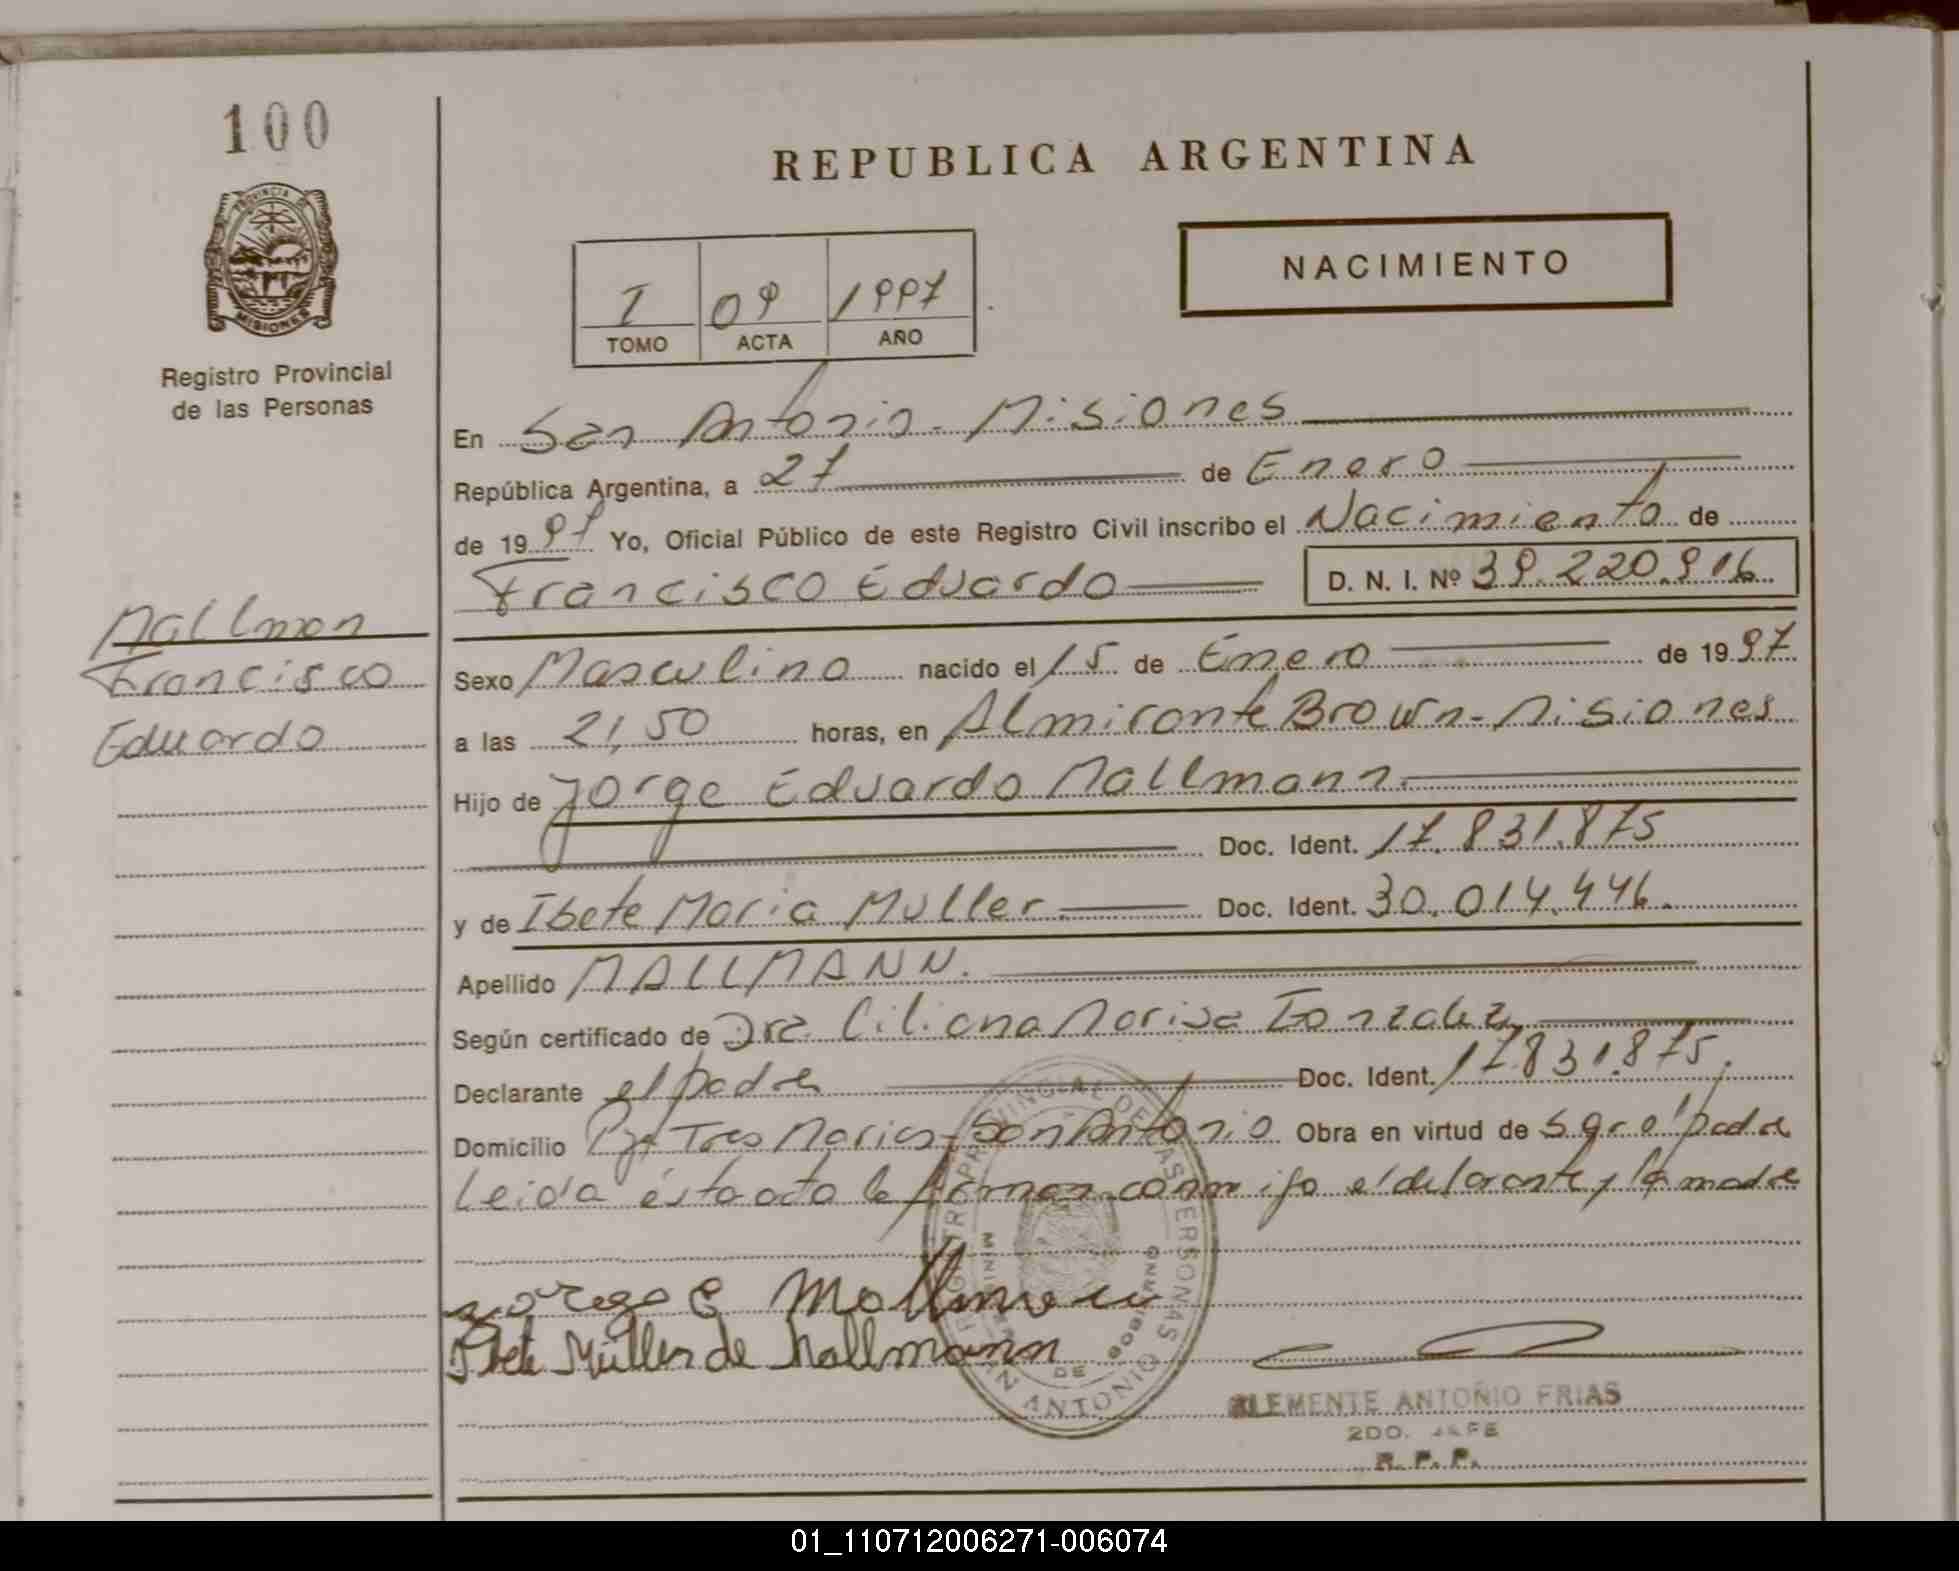 100
PROVINCIA DE
MISIONES
Registro Provincial
de las Personas
REPUBLICA ARGENTINA
NACIMIENTO
I 09 1997
TOMO ACTA AÑO
En San Antonio - Misiones
República Argentina, a 27 de Enero
de 1997 Yo, Oficial Público de este Registro Civil inscribo el Nacimiento de
Francisco Eduardo D. N. I. Nº 39.220.916
Mallman
Francisco
Eduardo
Sexo Masculino nacido el 15 de Enero de 1997
a las 21,50 horas, en Almirante Brown - Misiones
Hijo de Jorge Eduardo Mallmann.
Doc. Ident. 17.831.875
y de Ibete Maria Muller Doc. Ident. 30.014.446.
Apellido MALLMANN.
Según certificado de Dra. Liliana Marisa Gonzalez
Declarante el padre Doc. Ident. 17.831.875.
Domicilio Tres Marias - San Antonio Obra en virtud de padre
Leida ésta acta la firman conmigo el declarante y la madre
Jorge E Mallmann
Ibete Müller de Mallmann
REGISTRO PROVINCIAL DE LAS PERSONAS
MINISTERIO DE GOBIERNO
SAN ANTONIO
CLEMENTE ANTONIO FRIAS
2DO. JEFE
R. P. P.
01_110712006271-006074